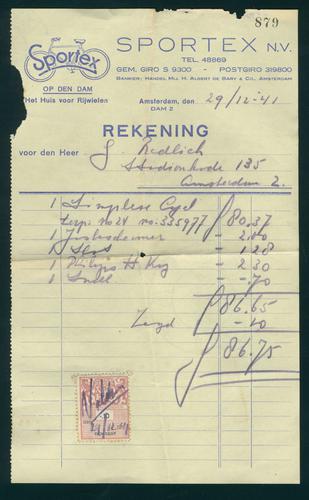 879
Sportex
SPORTEX N.V.
TEL. 48869
GEM. GIRO S 9300 - POSTGIRO 319800
BANKIER: HANDEL MIJ H. ALBERT DE BARY & CO., AMSTERDAM
OP DEN DAM
Het Huis voor Rijwielen
Amsterdam, den 29/12-41
DAM 2
REKENING
voor den Heer J. Redlich
Stadionkade 135
Amsterdam Z.
1 Simplex Cycl
No 24 no: 335977 f 80.37
1 - 2.00
1 Slot - 1.28
1 Philips H - 2.30
1 - -.70
86.65
Zegel - 10
f 86.75
29/12-41